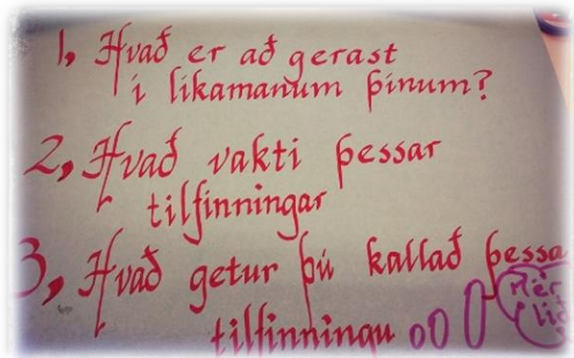 1, Hvað er að gerast
í líkamanum þínum?
2, Hvað vakti þessar
tilfinningar
3, Hvað getur þú kallað þessa
tilfinningu
Mér